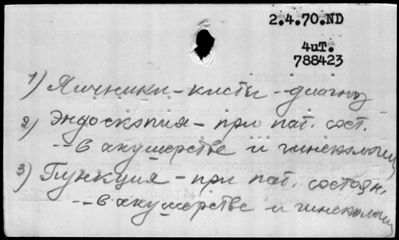 2.4.70.ND
4чт.
788423
1) Яичники – кисты – диагноз
2) Эндоскопия – при пат. сост.
-- в акушерстве и гинекологии
3) Пункция – при пат. состоян.
-- в акушерстве и гинекологии